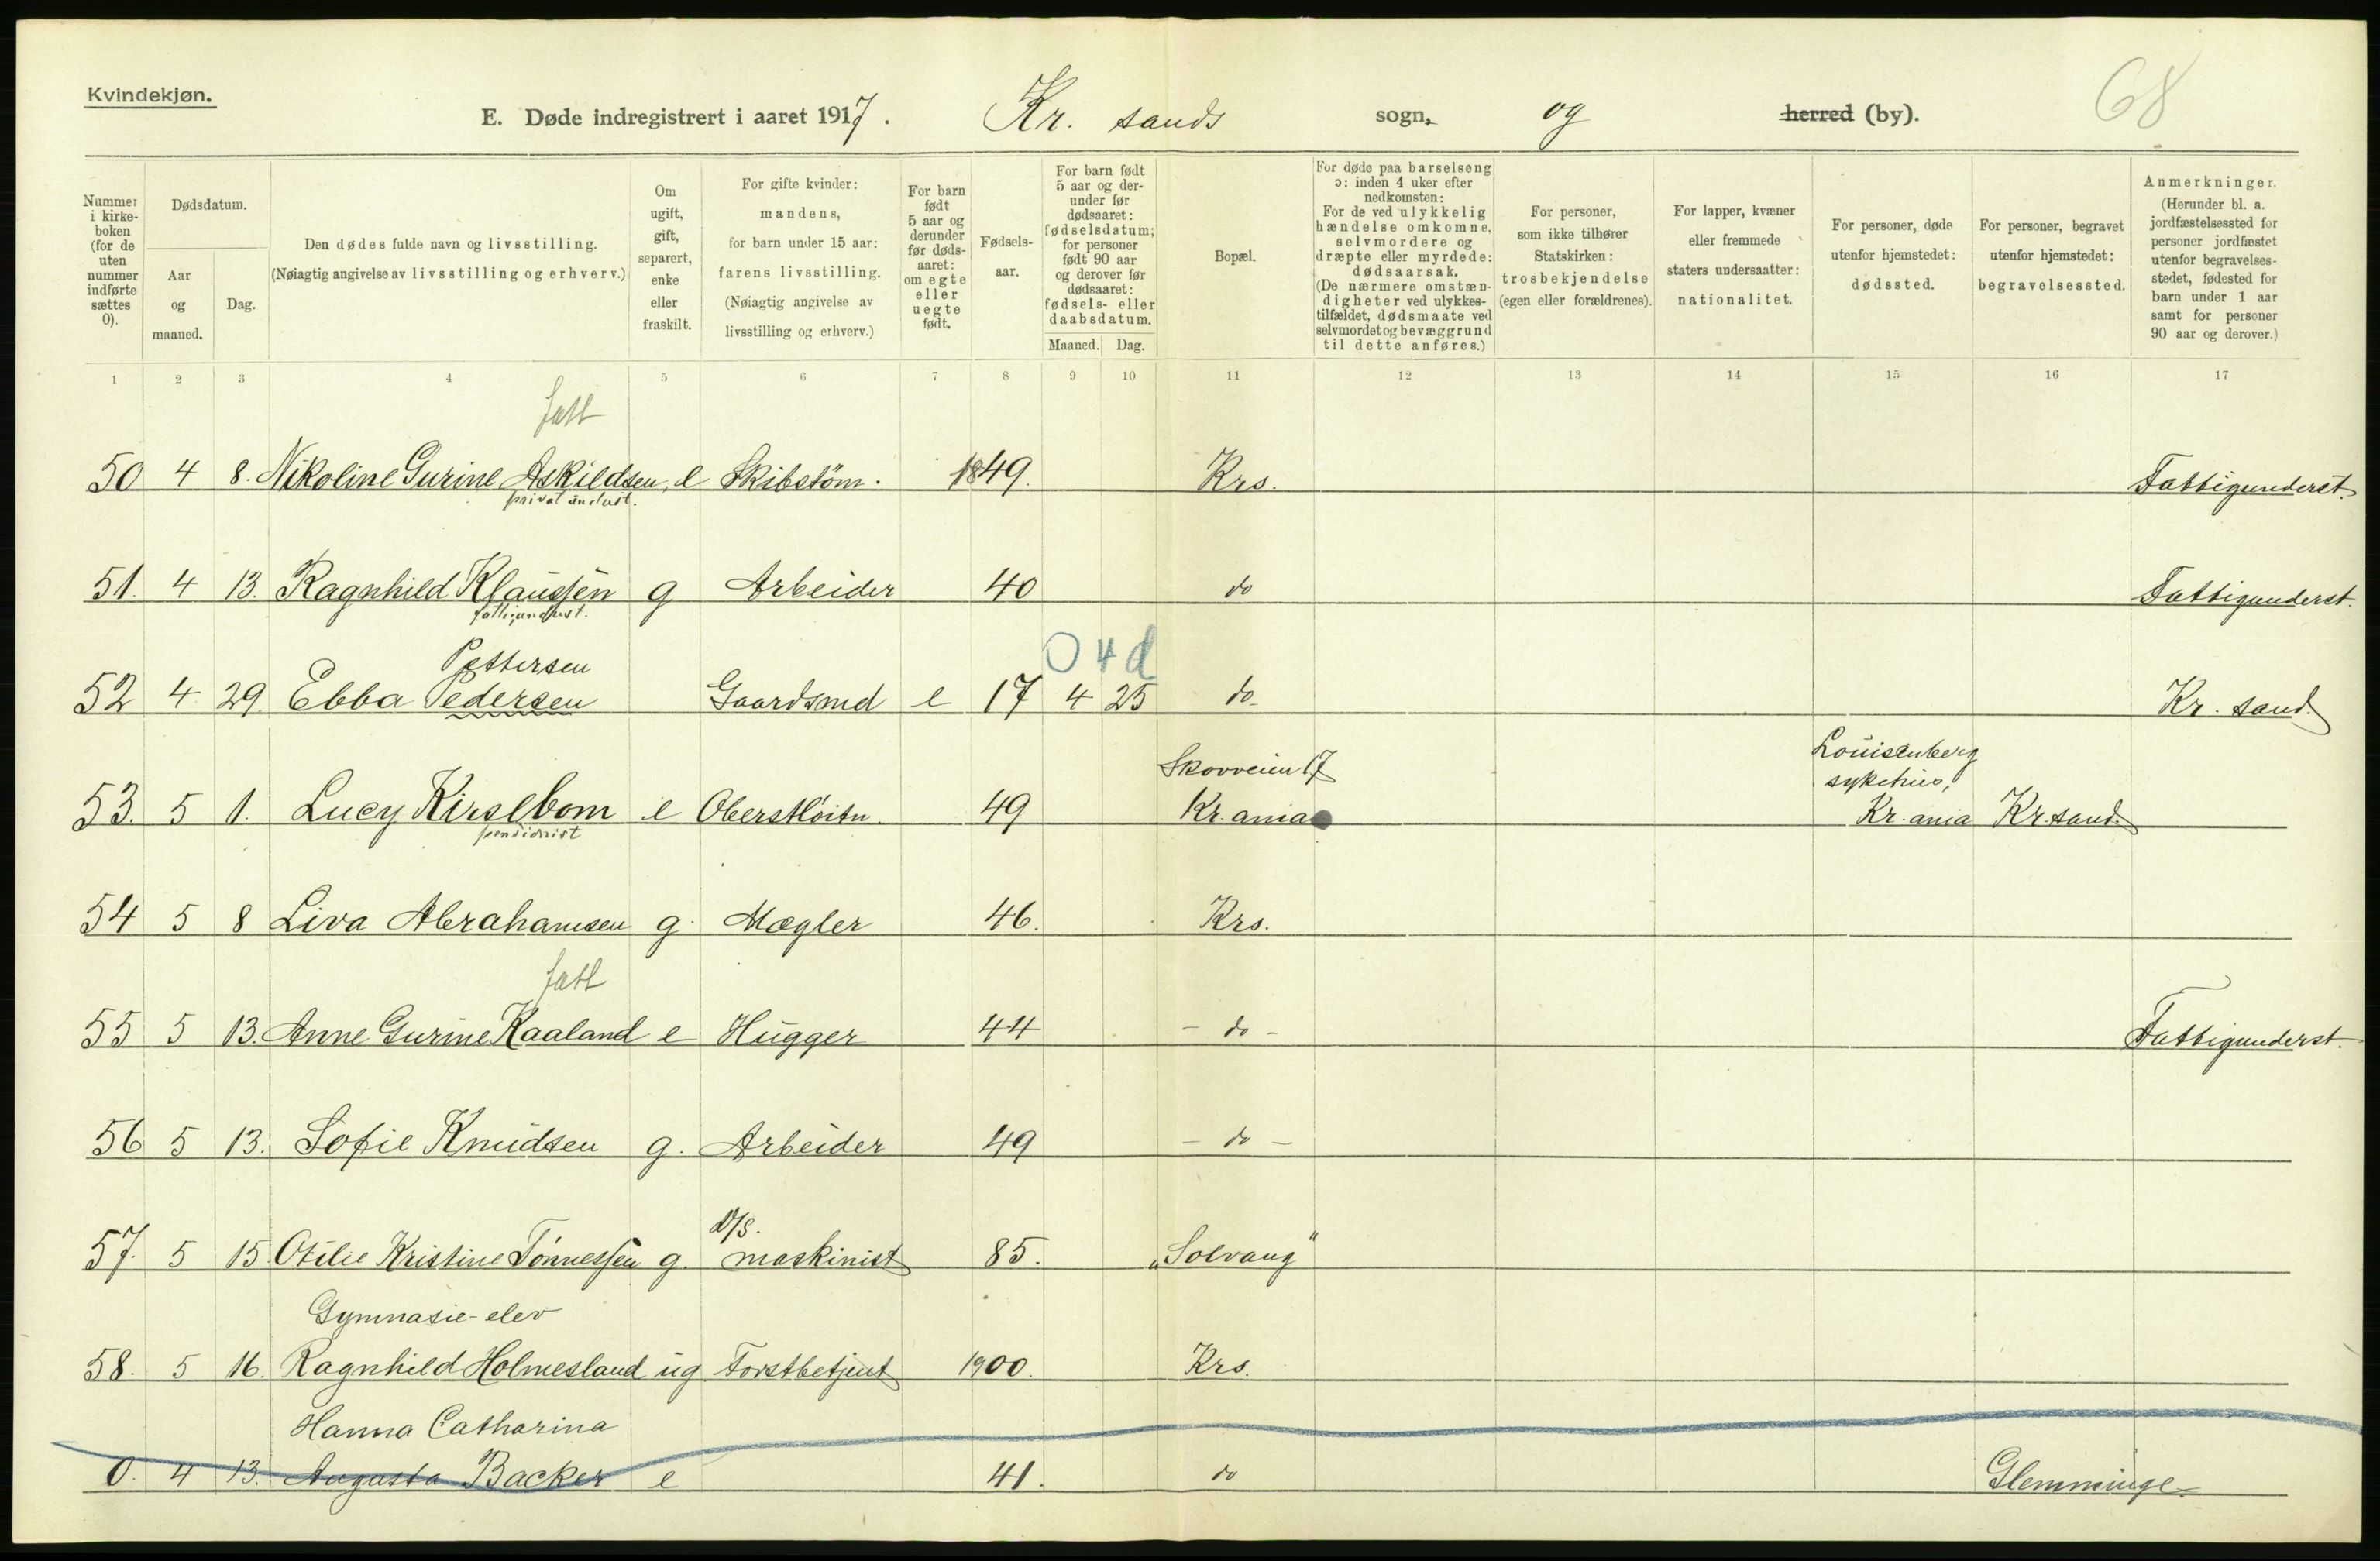 Kvindekjøn.
68
E. Døde indregistrert i aaret 1917. Kr. sands sogn, og herred (by).
Nummer i kirke-boken (for de uten nummer indførte sættes 0).
Dødsdatum.
Aar og maaned.
Dag.
Den dødes fulde navn og livsstilling.
(Nøiagtig angivelse av livsstilling og erhverv.)
Om ugift, gift, separert, enke eller fraskilt.
For gifte kvinder: mandens, for barn under 15 aar: farens livsstilling. (Nøiagtig angivelse av livsstilling og erhverv.)
For barn født 5 aar og derunder før døds-aaret: om egte eller uegte født.
Fødsels-aar.
For barn født 5 aar og der-under før dødsaaret: fødselsdatum; for personer født 90 aar og derover før dødsaaret: fødsels- eller daabsdatum.
Maaned. Dag.
Bopæl.
For døde paa barselseng ɔ: inden 4 uker efter nedkomsten: For de ved ulykkelig hændelse omkomne, selvmordere og dræpte eller myrdede: dødsaarsak. (De nærmere omstæn-digheter ved ulykkes-tilfældet, dødsmaate ved selvmordet og bevæggrund til dette anføres.)
For personer, som ikke tilhører Statskirken: trosbekjendelse (egen eller forældrenes).
For lapper, kvæner eller fremmede staters undersaatter: nationalitet.
For personer, døde utenfor hjemstedet: dødssted.
For personer, begravet utenfor hjemstedet: begravelsessted.
Anmerkninger. (Herunder bl. a. jordfæstelsessted for personer jordfæstet utenfor begravelses-stedet, fødested for barn under 1 aar samt for personer 90 aar og derover.)
1 2 3 4 5 6 7 8 9 10 11 12 13 14 15 16 17
fatt
50 4 8. Nikoline Gurine Askildsen, e Skibstøm. 1849. Krs. Fattigunderst.
privat underst.
51. 4 13. Ragnhild Klaussen g Arbeider 40 do Fattigunderst.
fattigunderst.
Pettersen 0 4 d
52 4 29. Ebba Pedersen Gaardsmd e 17 4 25 do Kr. sand.
Skovveien 17 Louisenberg
sykehus,
53. 5 1. Lucy Kirselbom e Oberstløitn. 49 Kr.ania Kr.ania Kr.sand.
pensionist
54 5 8 Liva Abrahamsen g. Mægler 46. Krs.
fatt
55 5 13. Anne Gurine Kaaland e Hugger 44 - do - Fattigunderst.
56 5 13. Sofie Knudsen g. Arbeider 49 - do -
D/S.
57. 5 15 Otilie Kristine Tønnessen g. maskinist 85. „Solvang"
Gymnasie-elev
58. 5 16. Ragnhild Holmesland ug Forstbetjent 1900. Krs.
Hanna Catharina
0. 4 13. Augusta Backer e 41. do Glemminge